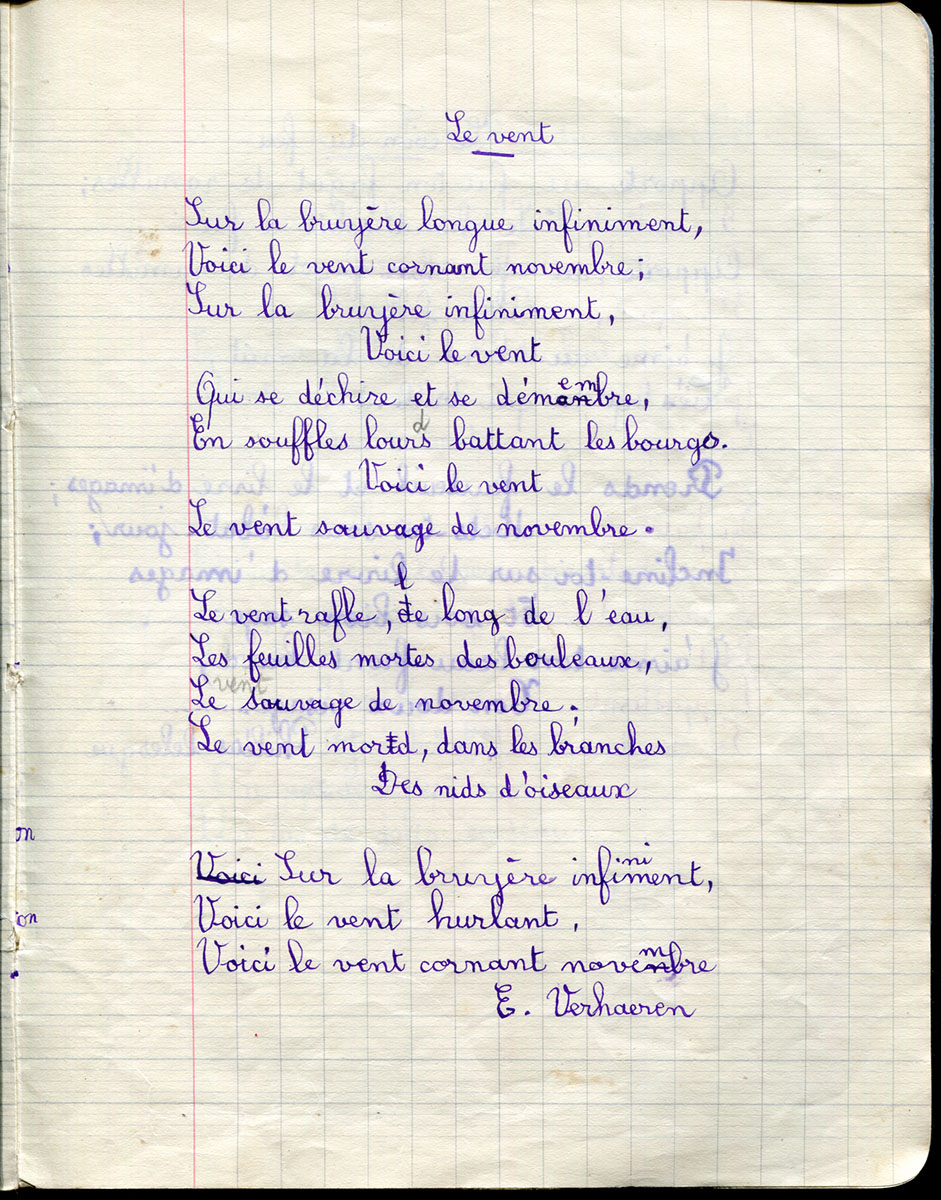 Le vent
Sur la bruyère longue infiniment,
Voici le vent cornant novembre;
Sur la bruyère infiniment,
Voici le vent
Qui se déchire et se démembre,
En souffles lourds battant les bourgs.
Voici le vent
Le vent sauvage de novembre.
Le vent rafle, le long de l'eau,
Les feuilles mortes des bouleaux,
Le vent sauvage de novembre.
Le vent mord, dans les branches
Des nids d'oiseaux
Voici Sur la bruyère infiniment,
Voici le vent hurlant,
Voici le vent cornant novembre
E. Verhaeren